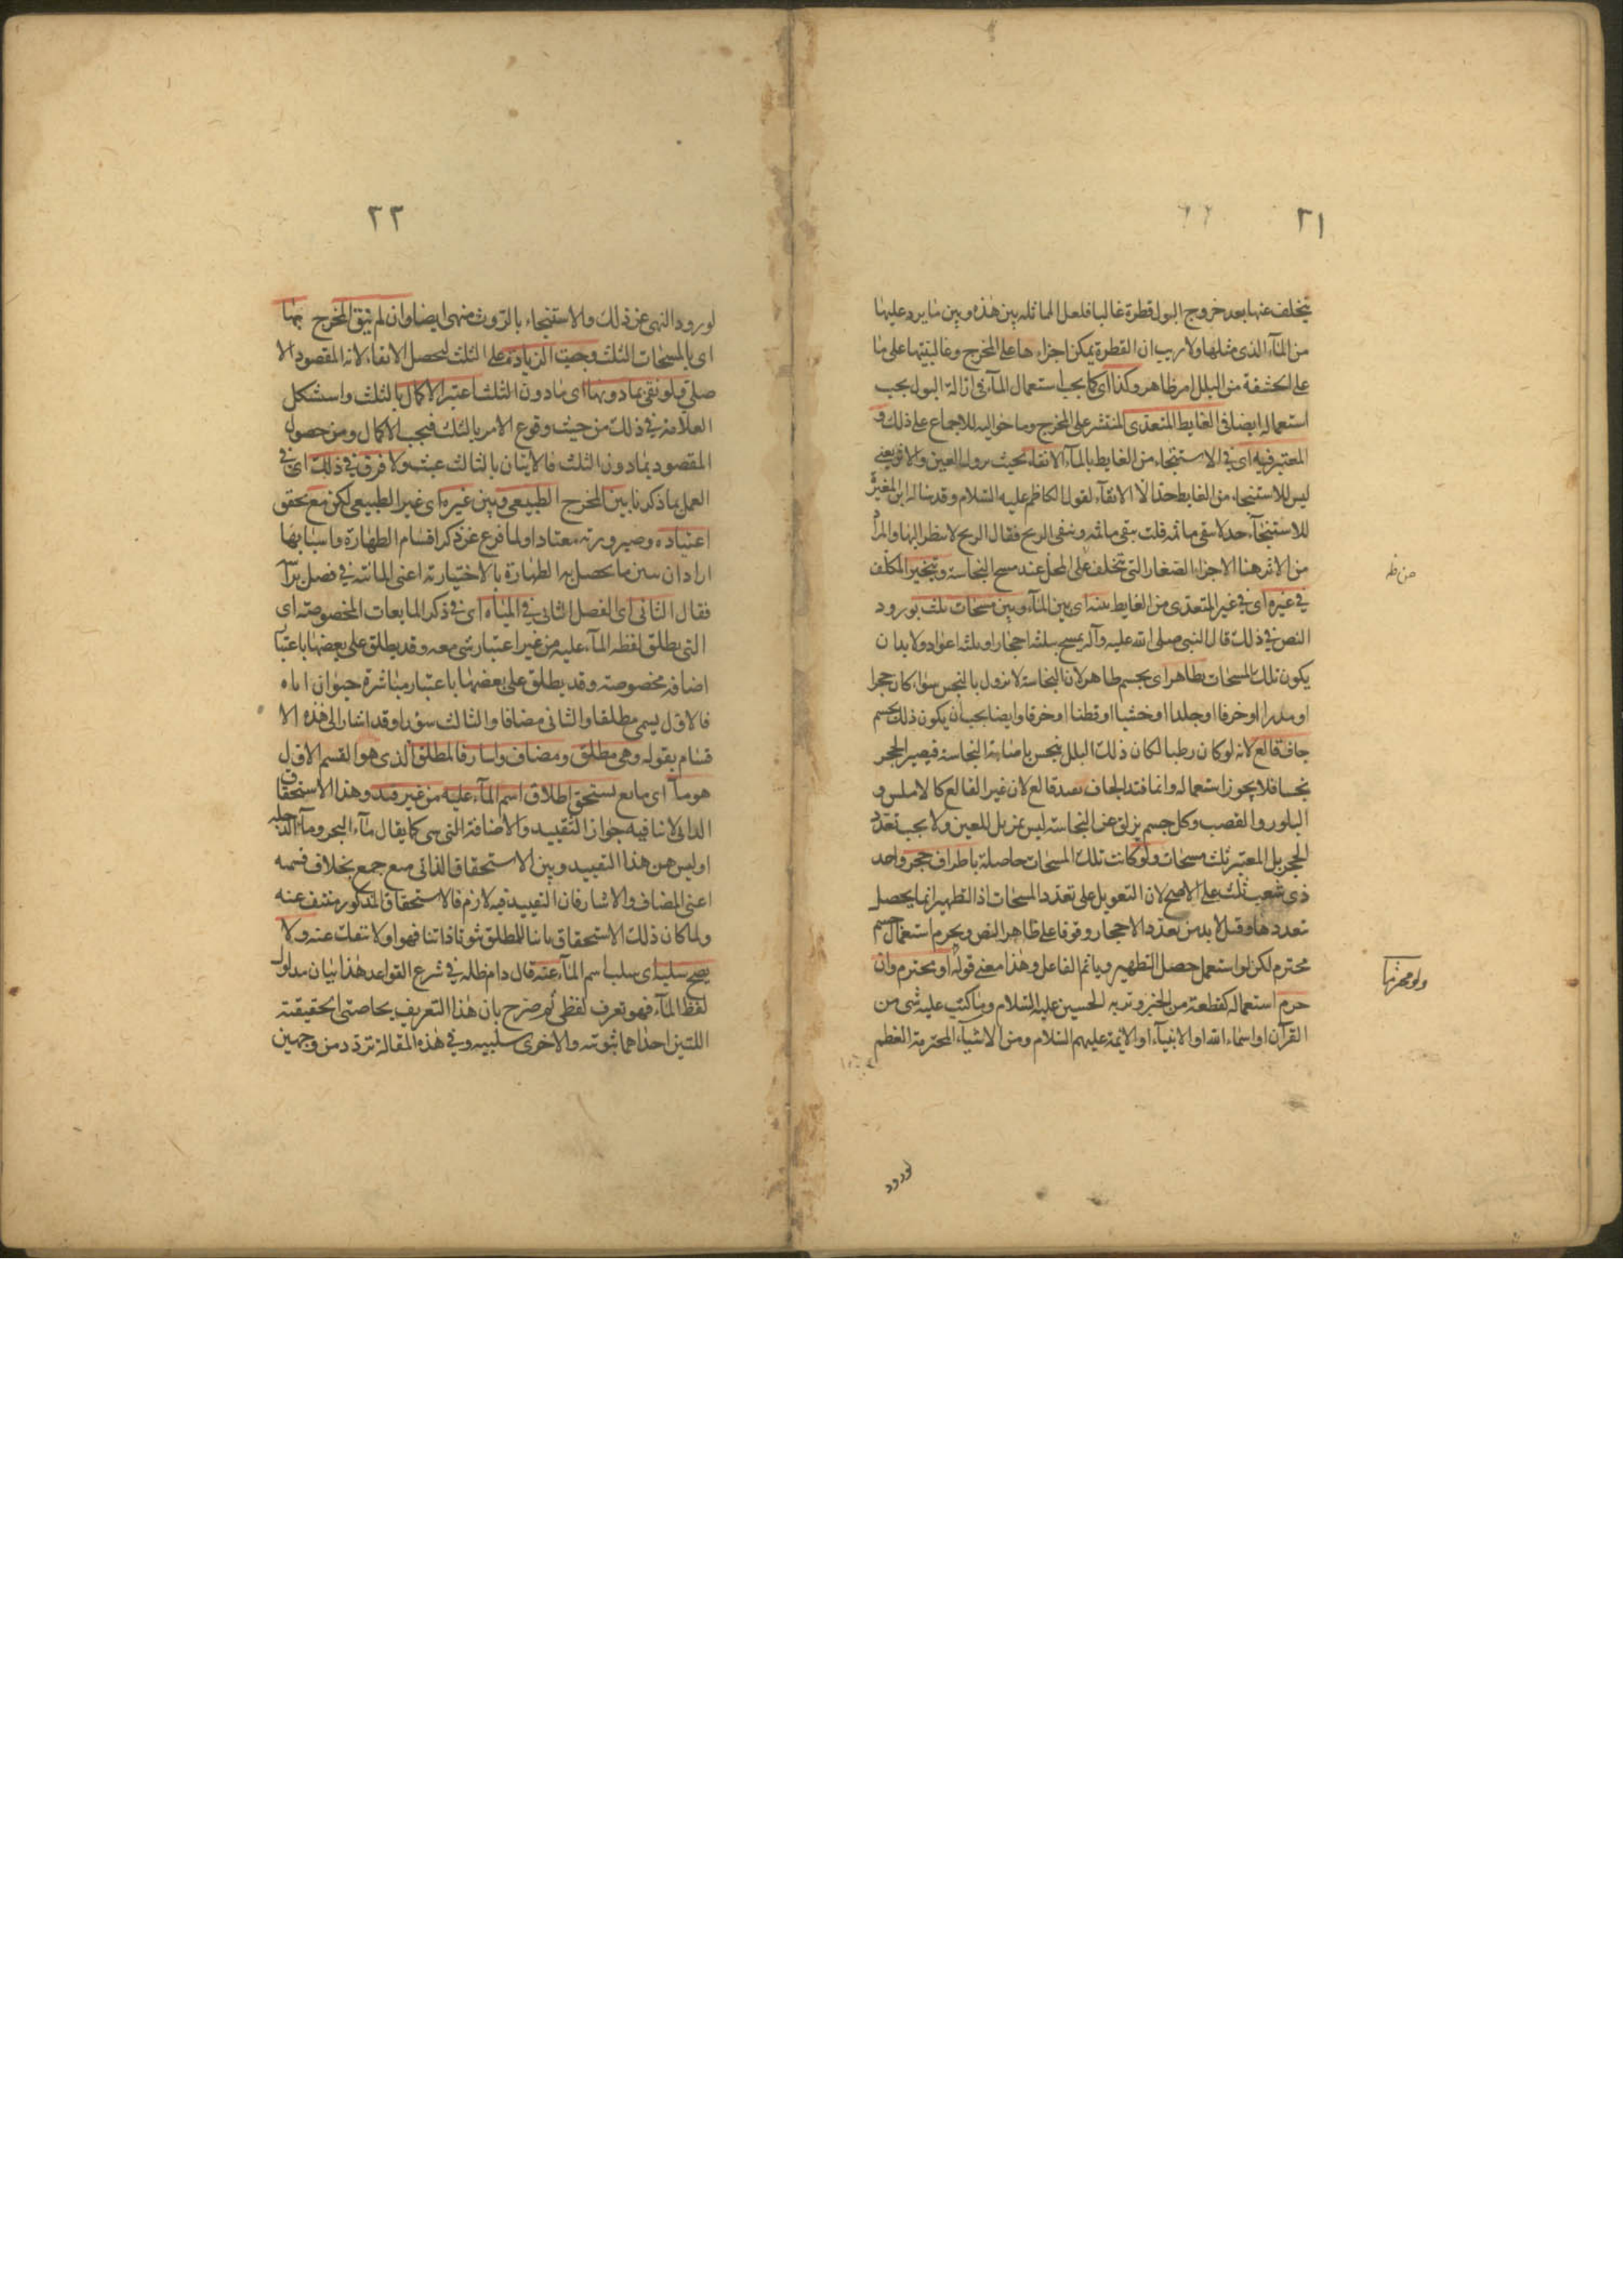 ٢١
يتخلف عنها بعد خروج البول قطرة غالبا فلعل المماثله بين هذه وبين ما يرد عليها
من المآء الذى مثلها ولا ريب ان القطرة يمكن اجزاءها على المخرج وغالبيتها على ما
على الحشفة من البلل امر ظاهر وكذا اى كما يجب استعمال المآء فى ازالة البول يجب
استعماله ايضا فى الغايط المتعدى المنتشر على المخرج وما حواليه للاجماع على ذلك و
المعتبر فيه اى فى الاستنجاء من الغايط بالمآء الانقاء بحيث يزول العين والاثر يعنى
ليس للاستنجاء من الغايط حدا الا الانقآء لقول الكاظم عليه السلام وقد سأله ابن المغيرة
للاستنجآء حد لا ينقى ما ثمه قلت ينقى ما ثمه ويبقى الريح فقال الريح لا ينظر اليها والمراد
من الاثر هنا الاجزاء الصغار التى تتخلف على المحل عند مسح النجاسة ويتخير المكلف
فى غيره اى فى غير المتعدى من الغايط بينه اى بين المآء وبين مسحات ثلث بورود
النص فى ذلك قال النبى صلى الله عليه وآله يمسح بثلثة احجار او بثلثة اعواد ولا بد ان
يكون تلك المسحات بطاهر اى بجسم طاهر لان النجاسة لا تزول بالنجس سواء كان حجرا
او مدرا او خرفا او جلدا او خشبا او قطنا او خرقا وايضا يجب ان يكون ذلك بجسم
جاف قالع لانه لو كان رطبا لكان ذلك البلل ينجس باصابة النجاسة فيصير الحجر
نجسا فلا يجوز استعماله وانما قيد الجاف بقيد قالع لان غير القالع كالاملس و
البلور والقصب وكل جسم يزلق عن النجاسة ليس بمزيل للعين ولا يجب تعدد
الحجر بل المعتبر ثلث مسحات ولو كانت تلك المسحات حاصلة باطراف حجر واحد
ذى شعب ثلث على الاصح لان التعويل على تعدد المسحات اذ التطهير انما يحصل
بتعددها وقيل لا بد من تعدد الاحجار وقوفا على ظاهر النص ويحرم استعمال جسم
محترم لكن لو استعمل حصل التطهير وياثم الفاعل وهذا معنى قوله او بمحترم وان
حرم استعماله كقطعة من الخبز وتربة الحسين عليه السلام وما كتب عليه شى من
القرآن او اسماء الله او الانبيآء او الائمة عليهم السلام ومن الاشيآء المحترمة العظم
لورود
٢٢
لورود النهى عن ذلك والاستنجاء بالروث منهى ايضا وان لم ينق المخرج بها
اى بالمسحات الثلث وجبت الزيادة على الثلث ليحصل الانقاء لانه المقصود الا
صلى ولو نقى بما دونها اى ما دون الثلث اعتبر الاكمال بالثلث واستشكل
العلامة فى ذلك من حيث وقوع الامر بالثلث فيجب الاكمال ومن حصول
المقصود بما دون الثلث فالاتيان بالثالث عبث ولا فرق فى ذلك اى فى
العمل بما ذكرنا بين المخرج الطبيعى وبين غيره اى غير الطبيعى لكن مع تحقق
اعتياده وصيرورته معتادا ولما فرغ عن ذكر اقسام الطهارة واسبابها
اراد ان يبين ما يحصل به الطهارة بالاختيارية اعنى المائية فى فصل براسه
فقال الثانى اى الفصل الثانى فى المياه اى فى ذكر المايعات المخصوصة اى
التى يطلق لفظة المآء عليه من غير اعتبار شى معه وقد يطلق على بعضها باعتبار
اضافة مخصوصة وقد يطلق على بعضها باعتبار مباشرة حيوان اياه
فالاول يسمى مطلقا والثانى مضافا والثالث سؤرا وقد اشار الى هذه الا
قسام بقوله وهى مطلق ومضاف واسار فالمطلق الذى هو القسم الاول
هو مآء اى مايع يستحق اطلاق اسم المآء عليه من غير قيد وهذا الاستحقاق
الذاتى لا ينافيه جواز التقييد والاضافة التى هى كما يقال مآء البحر ومآء الدجله
او ليس من هذا التقييد وبين الاستحقاق الذاتى منع جمع بخلاف قسمه
اعنى المضاف والاسار فان التقييد فيه لازم فالاستحقاق المذكور منتف عنه
ولما كان ذلك الاستحقاق ثابتا للمطلق ثبوتا ذاتيا فهو لا ينفك عنه ولا
يصح سلبه اى سلب اسم المآء عنه قال دام ظله فى شرح القواعد هذا بيان مدلول
لفظ المآء فهو تعريف لفظى ثم صرح بان هذا التعريف بخاصتى الحقيقية
اللتين احداهما ثبوتيه والاخرى سلبيه وفى هذه المقالة تردد من وجهين